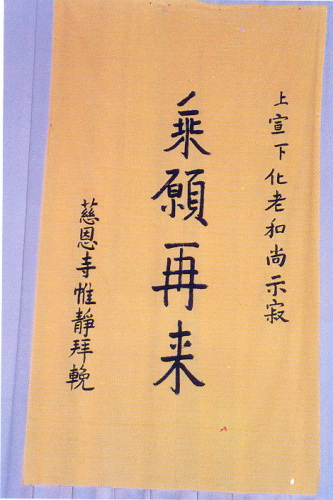 上宣下化老和尚示寂
乘願再来
慈恩寺惟靜拜輓